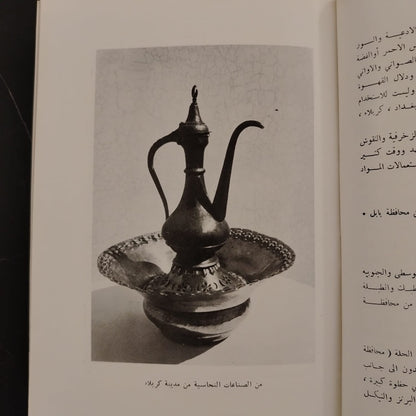 من الصناعات النحاسية من مدينة كربلاء
الادعية والسور
س الاحمر أوالفضة
الصواني والاواني
ودلال القهوة
وليست للاستخدام
غداد ، كربلاء ،
لزخرفية والنقوش
ـد ووقت كثيـر
ـتعمالات المـواد
ن محافظة بابل ٠
وسطى والجنوبية
من محافظـة
الحلة ( محافظة
ـدون الى جانب
ي حظوة كبيرة ،
البرنز والنيكل